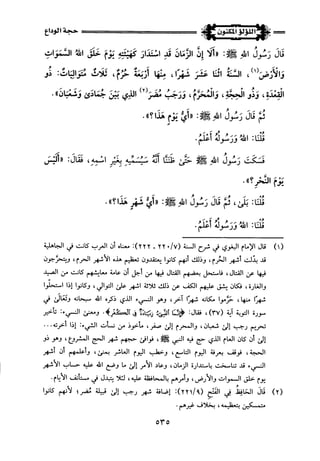 اللؤلؤ المكنون
حجة الوداع
قَالَ رَسُولُ اللهِ ﷺ: «أَلَا إِنَّ الزَّمَانَ قَدِ اسْتَدَارَ كَهَيْئَتِهِ يَوْمَ خَلَقَ اللهُ السَّمَوَاتِ
وَالْأَرْضَ(١)، السَّنَةُ اثْنَا عَشَرَ شَهْرًا، مِنْهَا أَرْبَعَةٌ حُرُمٌ، ثَلَاثٌ مُتَوَالِيَاتٌ: ذُو
الْقِعْدَةِ، وَذُو الْحِجَّةِ، وَالْمُحَرَّمُ، وَرَجَبُ مُضَرَ(٢) الَّذِي بَيْنَ جُمَادَى وَشَعْبَانَ».
ثُمَّ قَالَ رَسُولُ اللهِ ﷺ: «أَيُّ يَوْمٍ هَذَا؟».
قُلْنَا: اللهُ وَرَسُولُهُ أَعْلَمُ.
فَسَكَتَ رَسُولُ اللهِ ﷺ حَتَّى ظَنَنَّا أَنَّهُ سَيُسَمِّيهِ بِغَيْرِ اسْمِهِ، فَقَالَ: «أَلَيْسَ
يَوْمَ النَّحْرِ؟».
قُلْنَا: بَلَى، ثُمَّ قَالَ رَسُولُ اللهِ ﷺ: «أَيُّ شَهْرٍ هَذَا؟».
قُلْنَا: اللهُ وَرَسُولُهُ أَعْلَمُ.
(١) قال الإمام البغوي في شرح السنة (٢٢٠/٧ - ٢٢٢): معناه أن العرب كانت في الجاهلية
قد بدلت أشهر الحُرم، وذلك أنهم كانوا يعتقدون تعظيم هذه الأشهر الحرم، ويتحرجون
فيها عن القتال، فاستحل بعضهم القتال فيها من أجل أن عامة معايشهم كانت من الصيد
والغارة، فكان يشق عليهم الكف عن ذلك ثلاثة أشهر على التوالي، وكانوا إذا استحلوا
شهرًا منها، حَرَّموا مكانه شهرًا آخر، وهو النسيء الذي ذكره الله سبحانه وتَعَالَى في
سورة التوبة آية (٣٧)، فقال: ﴿إِنَّمَا النَّسِيءُ زِيَادَةٌ فِي الْكُفْرِ﴾. ومعنى النسيء: تأخير
تحريم رجب إلى شعبان، والمحرم إلى صفر، مأخوذ من نسأت الشيء: إذا أخرته...
إلى أن كان العام الذي حج فيه النبي ﷺ، فوافق حجهم شهر الحج المشروع، وهو ذو
الحجة، فوقف بعرفة اليوم التاسع، وخطب اليوم العاشر بمنى، وأعلمهم أن أشهر
النسيء قد تناسخت باستدارة الزمان، وعاد الأمر إلى ما وضع الله عليه حساب الأشهر
يوم خلق السموات والأرض، وأمرهم بالمحافظة عليه، لئلا يتبدل في مستأنف الأيام.
(٢) قال الحافظ في الفَتْحِ (٢٢١/٩): إضافة شهر رجب إلى قبيلة مُضر؛ لأنهم كانوا
متمسكين بتعظيمه، بخلاف غيرهم.
٥٣٥